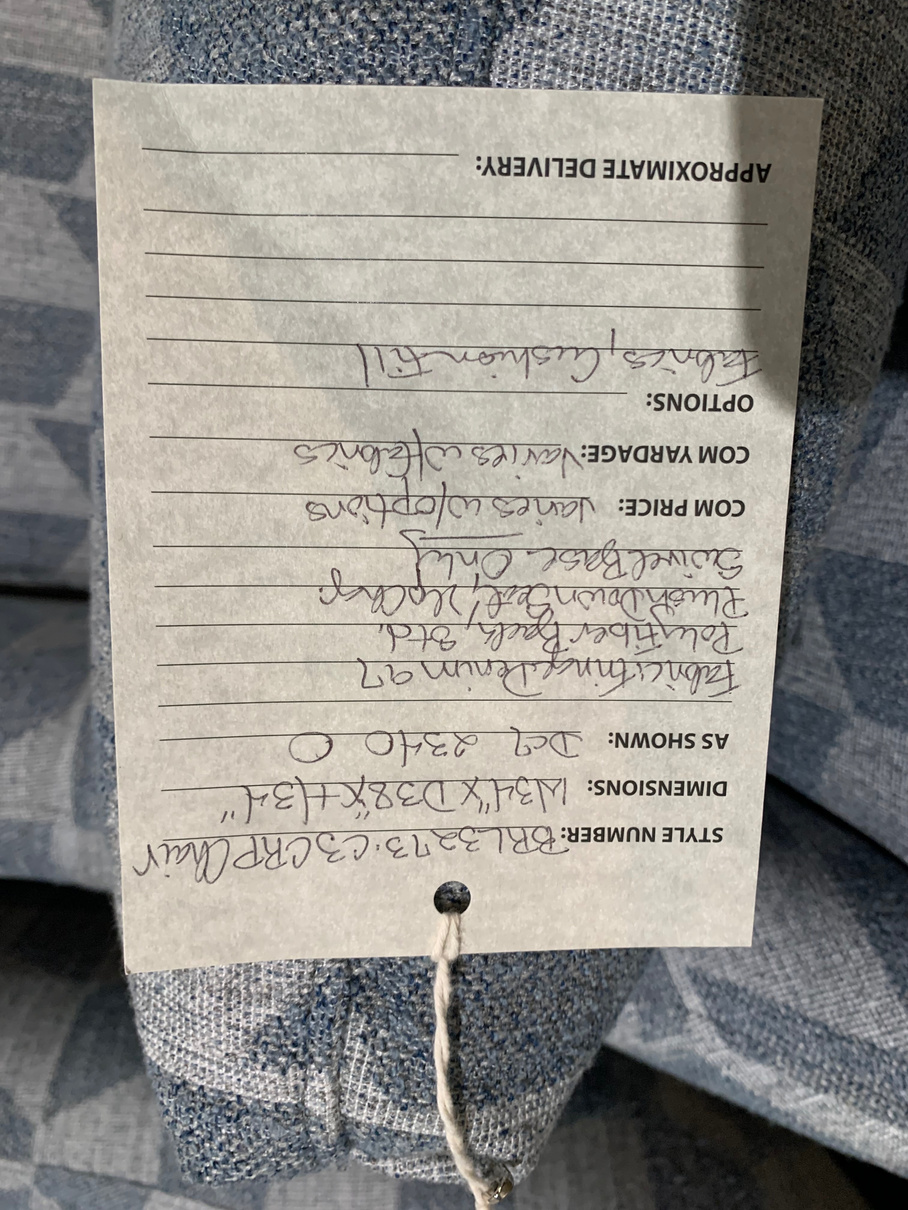 STYLE NUMBER: BRL3273-C3CRP Chair
DIMENSIONS: W34"x D38"x H34"
AS SHOWN: 2340
Fabric: Fringe Denim 97
Poly Fiber Back, Std.
Plush Down Seat,
Swivel Base Only
COM PRICE: Varies w/options
COM YARDAGE: Varies w/fabrics
OPTIONS:
Fabrics, Cushion Fill
APPROXIMATE DELIVERY: